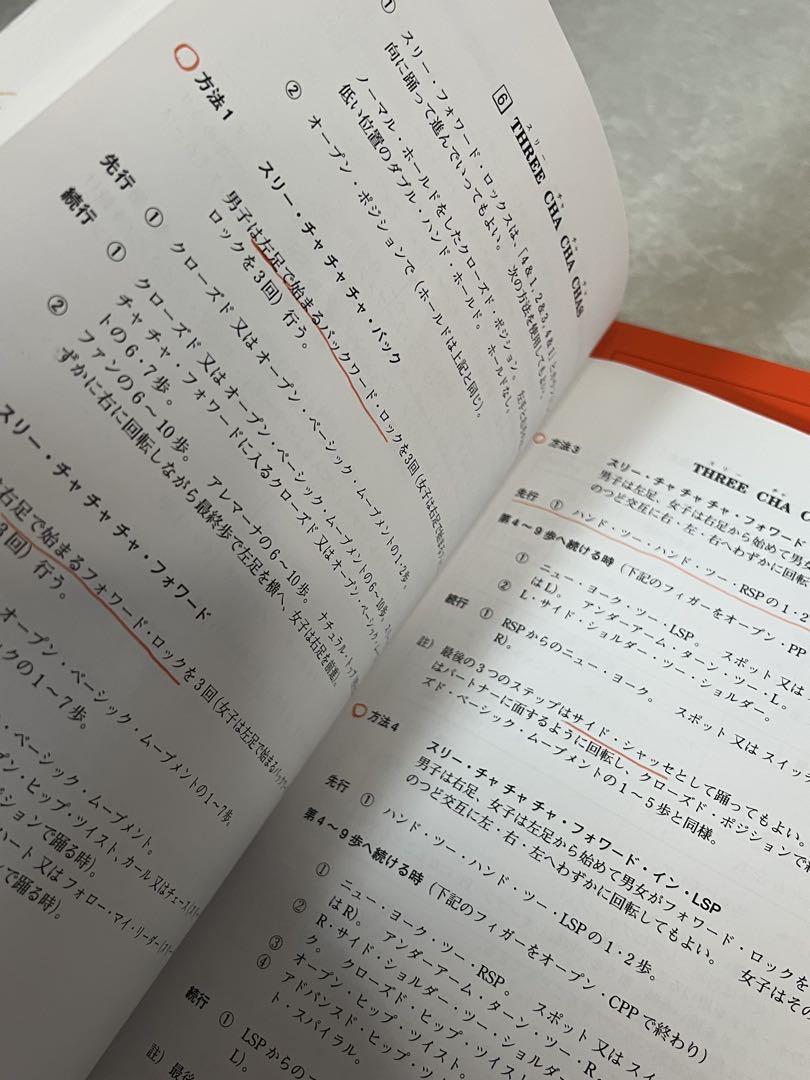 ①
スリー・フォワード・ロックスは、「4&1,2&3,4&1」と
向に踊って進んでいってもよい。 次の方法を使用してもよい。
ノーマル・ホールドをしたクローズド・ポジション。
低い位置のダブル・ハンド・ホールド。 ホールドなし。
② オープン・ポジションで（ホールドは上記と同じ）。
スリー チャ チャ チャ
6 THREE CHA CHA CHAS
方法1
スリー・チャ チャ チャ・バック
男子は左足で始まるバックワード・ロックを3回（女子は右足で始まる
ロックを3回）行う。
先行 ① クローズド 又は オープン・ベーシック・ムーブメントの1・2歩。
続行 ① クローズド 又は オープン・ベーシック・ムーブメントの6～10歩。
チャ チャ チャ・フォワードに入るクローズド 又は オープン・ベーシック
トの6・7歩。
② ファンの6～10歩。 アレマーナの6～10歩。 ナチュラル・トップ
ずかに右に回転しながら最終歩で左足を横へ、女子は右足を前進）。
スリー・チャ チャ チャ・フォワード
右足で始まるフォワード・ロックを3回（女子は左足で始まるバックワード
3回）行う。
オープン・ベーシック・ムーブメントの1～7歩。
クの1～7歩。
ベーシック・ムーブメント。
プン・ヒップ・ツイスト、カール 又は チェース
ポジションで踊る時）。
ハート 又は フォロー・マイ・リーダー
で踊る時）。
スリー チャ
THREE CHA C
方法3
スリー・チャ チャ チャ・フォワード
男子は左足、女子は右足から始めて男女
のつど交互に右・左・右へわずかに回転
先行 ① ハンド・ツー・ハンド・ツー・RSPの1・2
第4～9歩へ続ける時（下記のフィガーをオープン・PP
① ニュー・ヨーク・ツー・LSP。 スポット 又は
はL）。 アンダーアーム・ターン・ツー・L。
② L・サイド・ショルダー・ツー・ショルダー。
続行 ① RSPからのニュー・ヨーク。 スポット 又は スイッチ
R）。
註）最後の3つのステップはサイド・シャッセとして踊ってもよい。
はパートナーに面するように回転し、クローズド・ポジションで終
ズド・ベーシック・ムーブメントの1～5歩と同様。
方法4
スリー・チャ チャ チャ・フォワード・イン・LSP
男子は右足、女子は左足から始めて男女がフォワード・ロックを
のつど交互に左・右・左へわずかに回転してもよい。 女子はその
先行 ① ハンド・ツー・ハンド・ツー・LSPの1・2歩。
第4～9歩へ続ける時（下記のフィガーをオープン・CPPで終わり）
① ニュー・ヨーク・ツー・RSP。 スポット 又は スイ
はR）。 アンダーアーム・ターン・ツー・R。
② R・サイド・ショルダー・ツー・ショルダ
③ オープン・ヒップ・ツイスト。
ク。 クローズド・ヒップ・ツイスト
④ アドバンスド・ヒップ・ツ
ト・スパイラル。
続行 ① LSPからの
L）。
註）最後